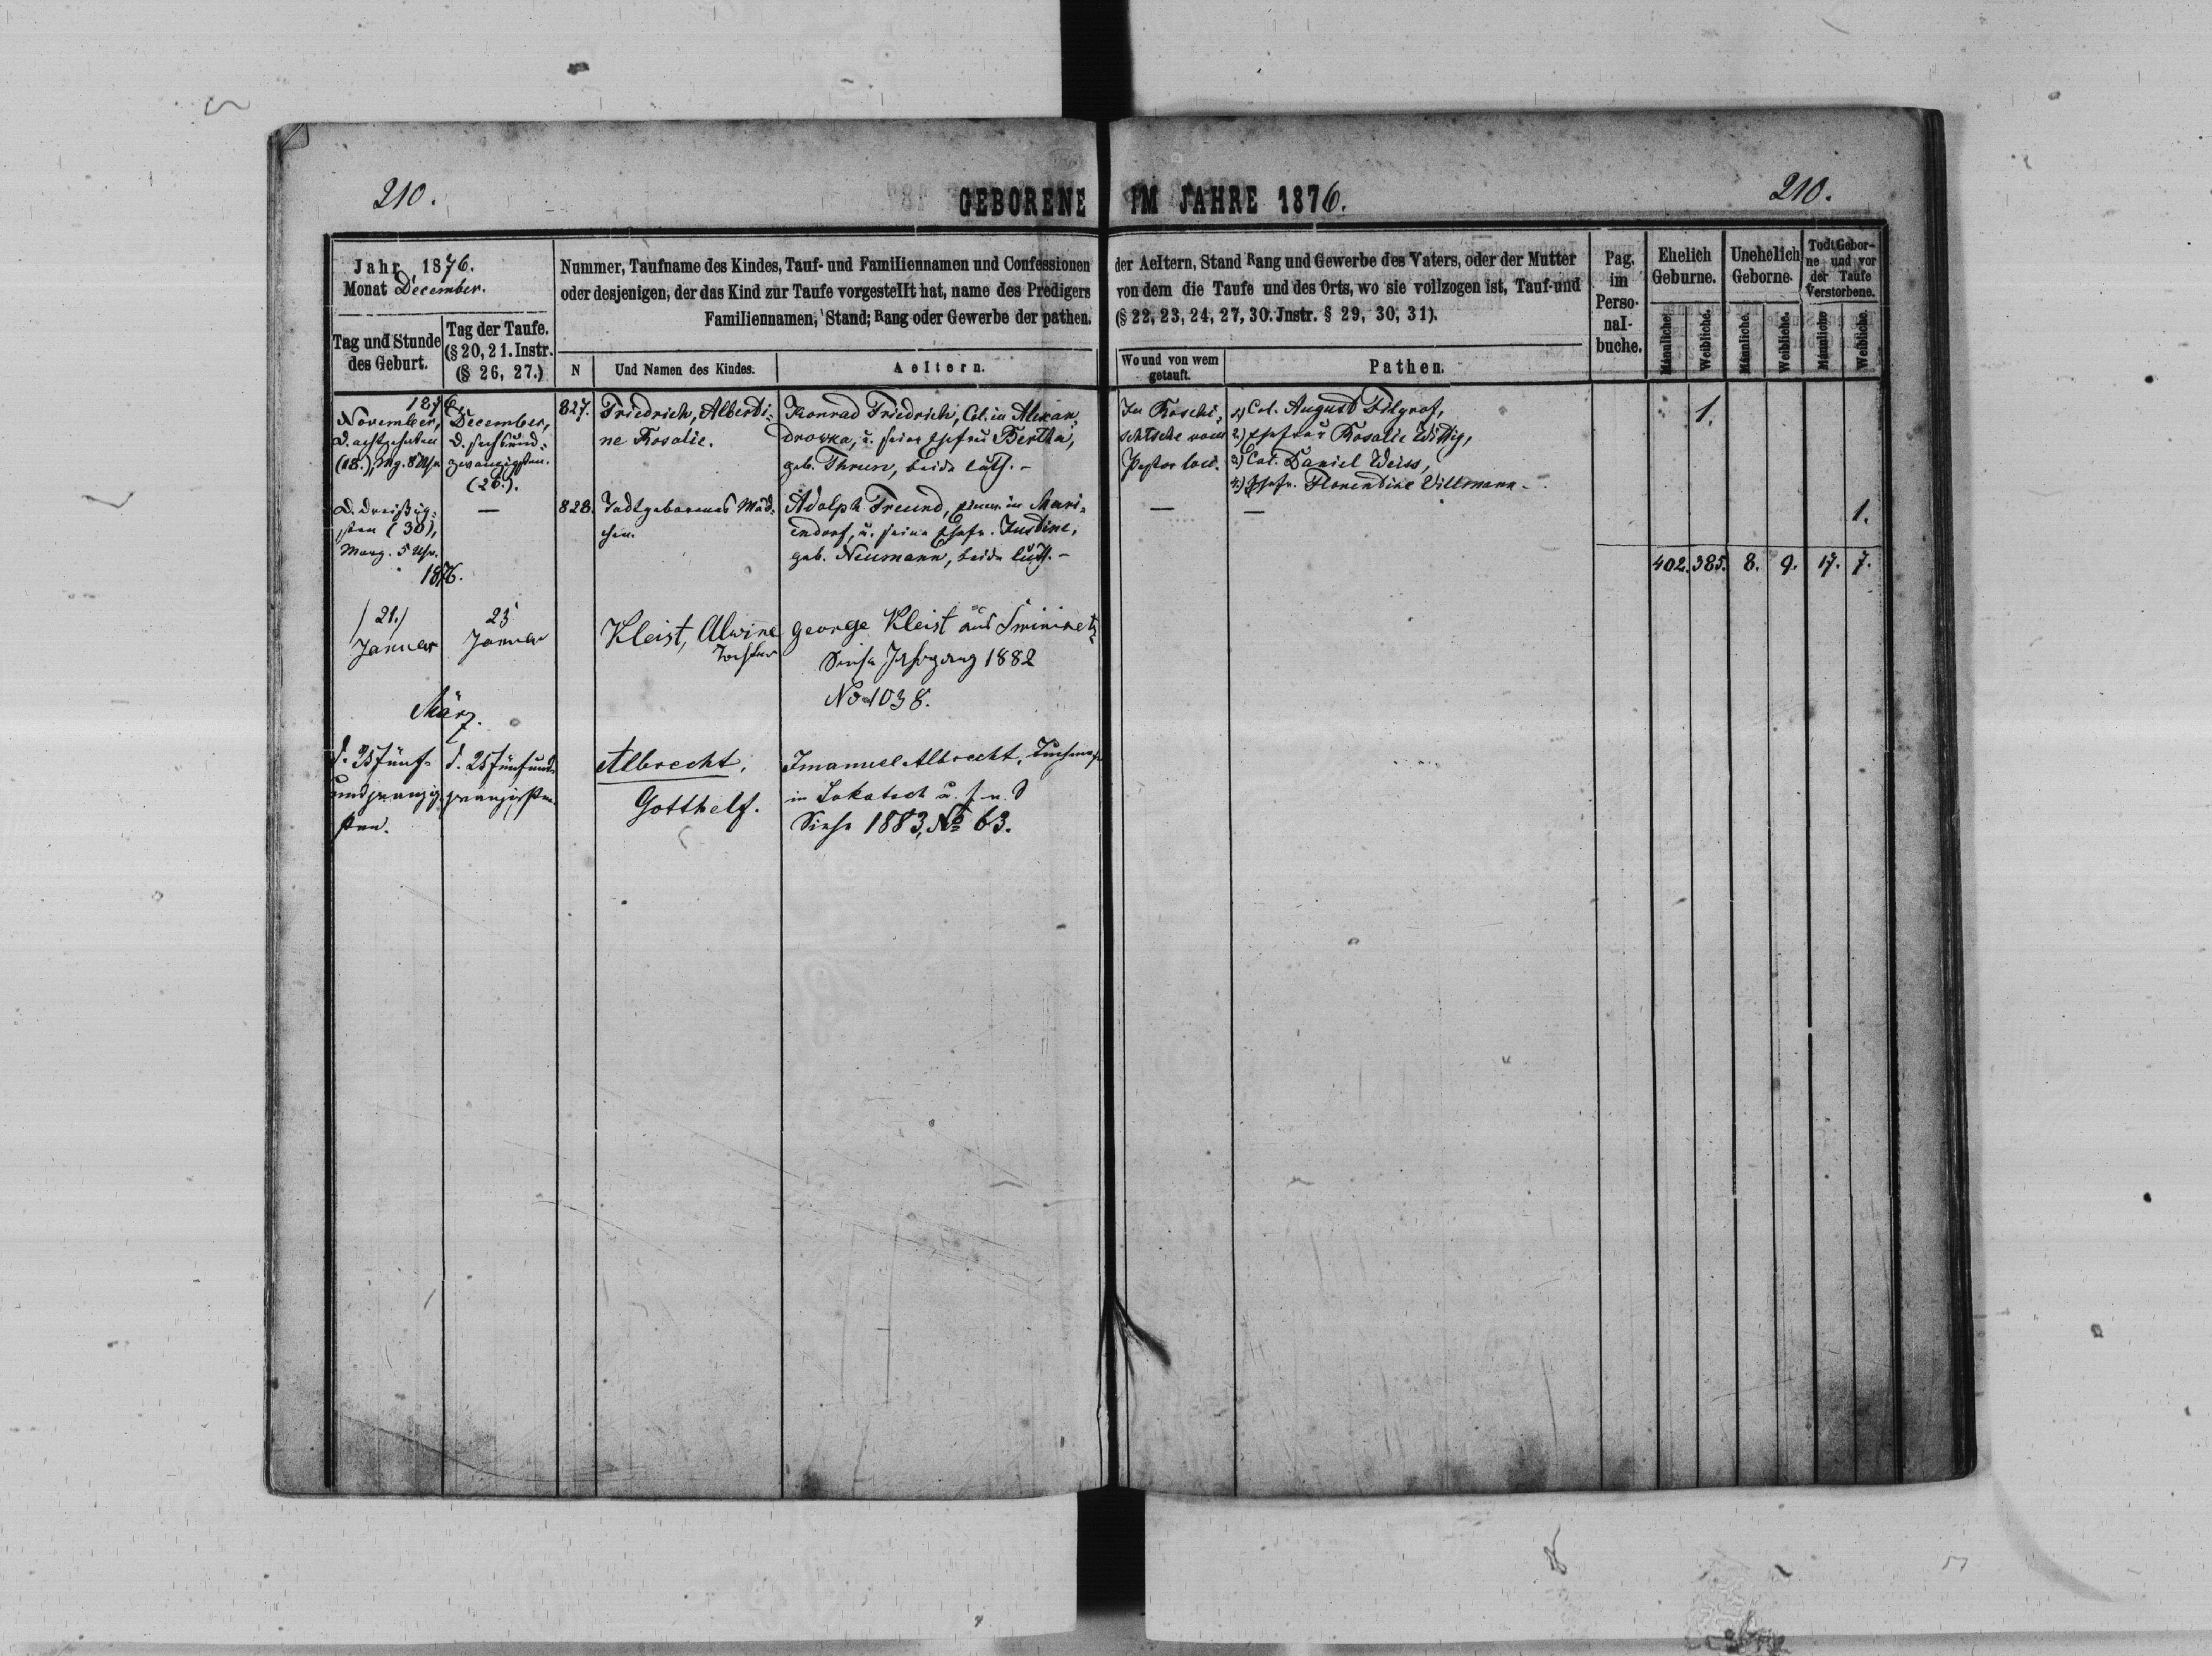 210.
GEBORENE IM JAHRE 1876.
210.
Jahr 1876.
Monat December.
Tag und Stunde
des Geburt.
Tag der Taufe.
(§ 20, 21. Instr.
(§ 26, 27.)
Nummer, Taufname des Kindes, Tauf- und Familiennamen und Confessionen
oder desjenigen, der das Kind zur Taufe vorgestellt hat, name des Predigers
Familiennamen, Stand; Rang oder Gewerbe der pathen.
N
Und Namen des Kindes.
Aeltern.
der Aeltern, Stand Rang und Gewerbe des Vaters, oder der Mutter
von dem die Taufe und des Orts, wo sie vollzogen ist, Tauf-und
(§ 22, 23, 24, 27, 30. Jnstr. § 29, 30, 31).
Wo und von wem
getauft.
Pathen.
Pag.
im
Perso-
nal-
buche.
Ehelich
Geburne.
Unehelich
Geborne.
Todt Gebor-
ne und vor
der Taufe
Verstorbene.
Männliche.
Weibliche.
Männliche.
Weibliche.
Männliche
Weibliche.
1876.
November,
d. achtzehnten
(18.), Mg. 8 Uhr
December,
d. sechsund-
zwanzigsten.
(26.).
827.
Friedrich, Alberti-
ne Rosalie.
Konrad Friedrich, Col. in Alexan-
drowka, u. seine Ehefrau Bertha,
geb. Thrun, beide luth. -
In Roschi-
schtsche vom
Pastor loci.
1.) Col. August Filgrof,
2.) Ehefrau Rosalie Wittig,
3.) Col. Daniel Weiss,
4.) Ehefr. Florentine Villmann.-
1.
D. dreißig-
sten (30),
Morg. 5 Uhr.
—
828.
Todtgeborenes Mäd-
chen.
Adolph Freund, in Mari-
endorf, u. seine Ehefr. Justine,
geb. Neumann, beide luth. -
—
—
1.
402. 385. 8. 9. 17. 7.
1876.
/21./
Januar
23
Januar
Kleist, Alwine
Tochter
George Kleist aus
Siehe Jahrgang 1882
No 1038.
März.
d. 25 fünf-
undzwanzig-
sten.
d. 25 fünfund-
zwanzigsten.
Albrecht,
Gotthelf.
Imanuel Albrecht,
in Lokatsch u. s. u. d
Siehe 1883, No 63.